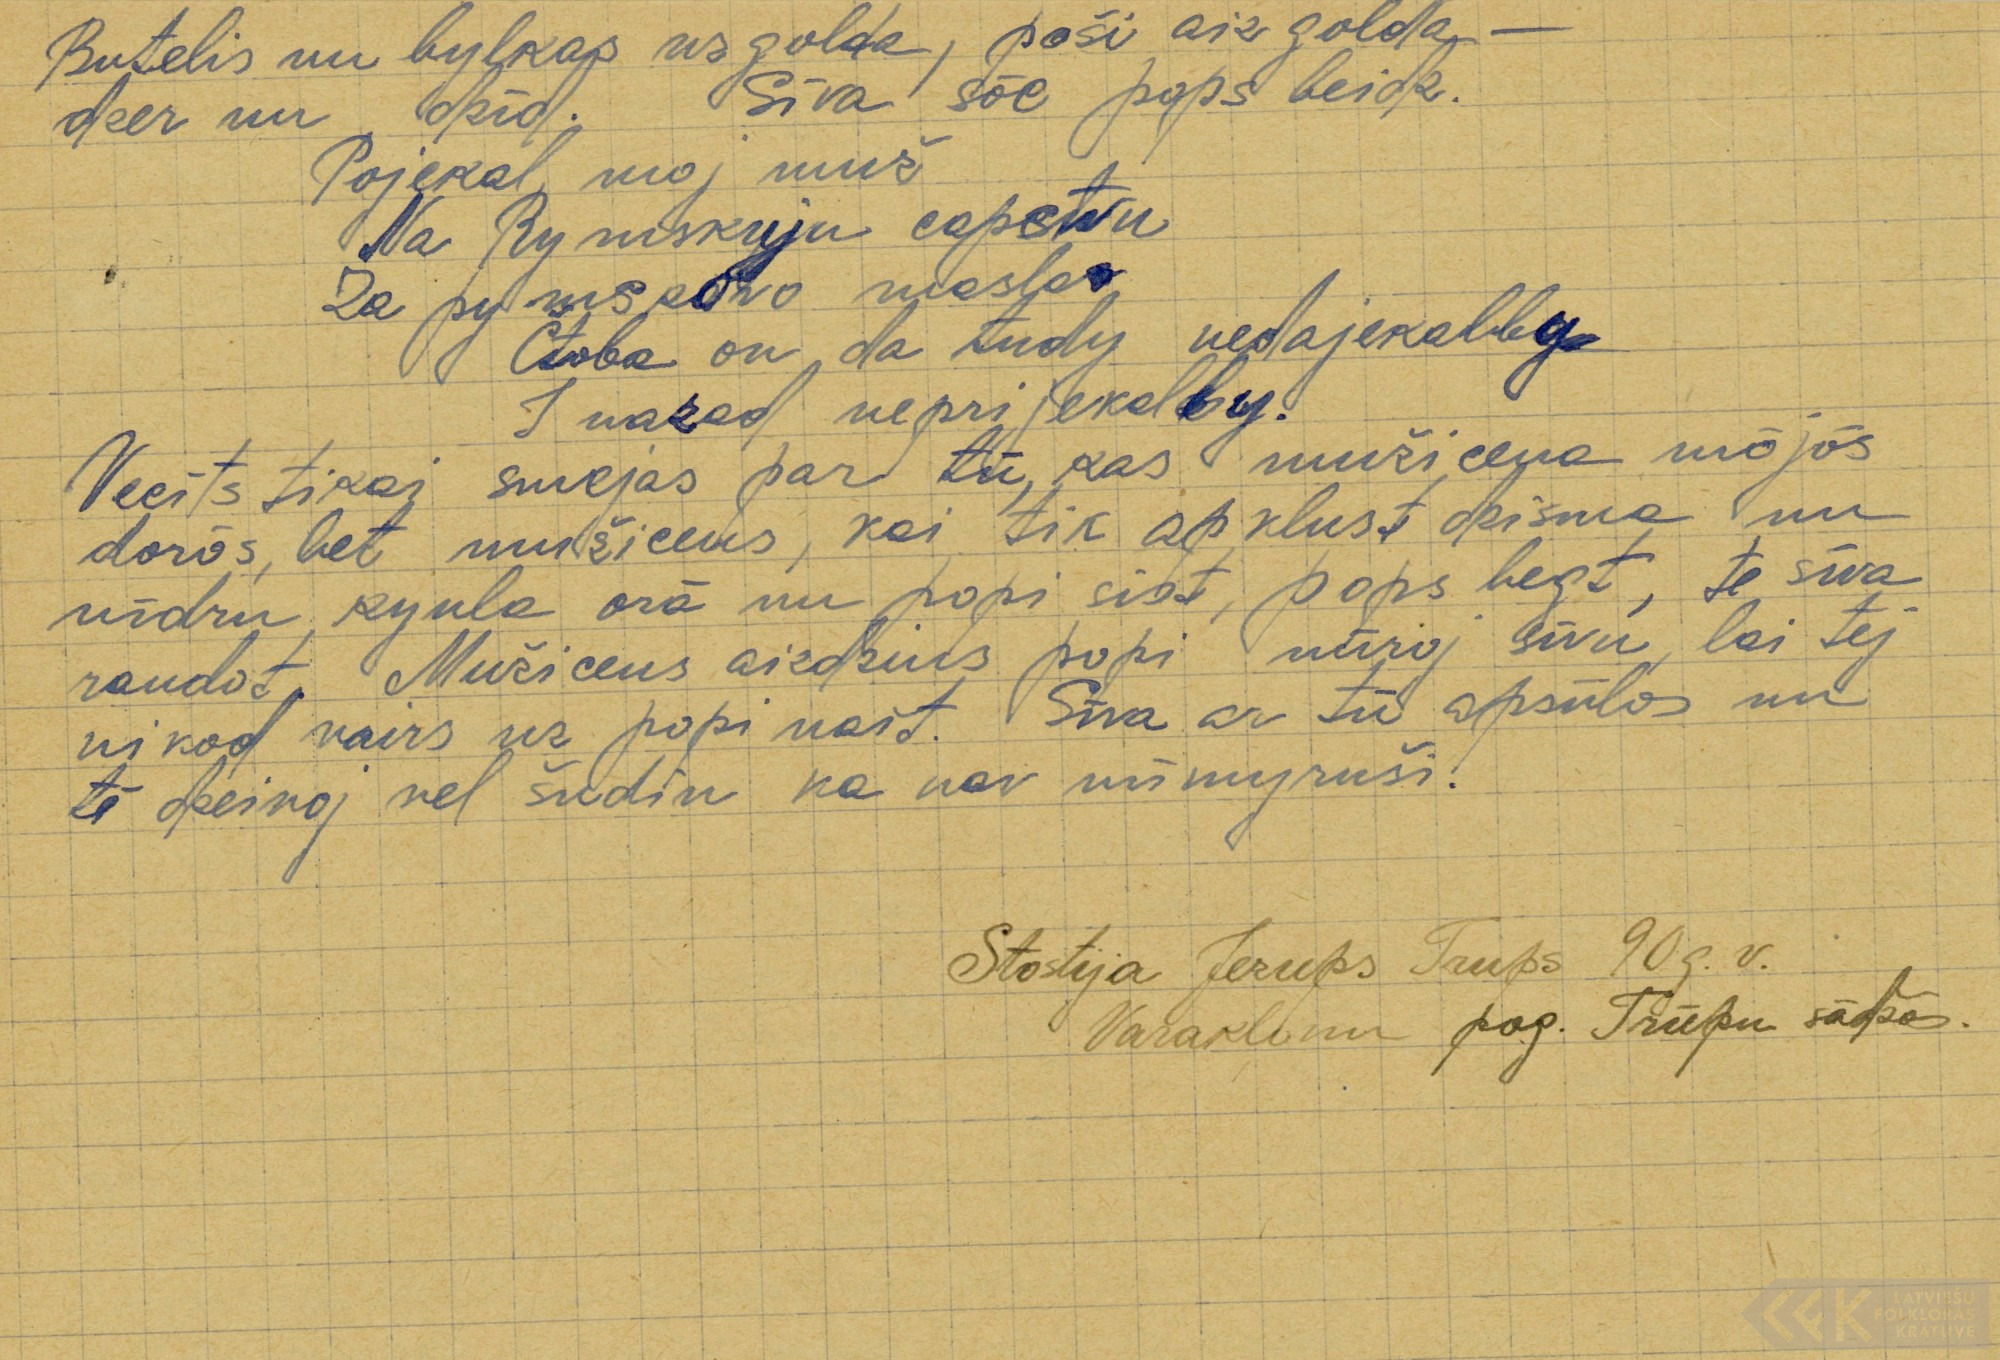 Butelis nu bylkas us golda, poši aiz golda —
dzer nu dzīd. Sīva sōc pops beidz.
Pojekal moj muž
Na Rymskuju capstvu
Za pymskovo masla
Čtoba on da tudy nedajekalby
I nazad neprijekalby.
Vecīts tikai smejas par tū, kas mužicena mōjōs
dorōs, bet mužicens, kai tik apklust dzīsma nu
nīdru kyula orā nu popi sist, pops begt, te sīva
raudot. Mužicens aizdzius popi nūroj sīvu, lai tej
nikod vairs uz popi nait. Sīva ar tū apsūlos nu
tē dzeivoj vel šudin ka nav nūmyruši.
Stostija Jezups Trups 90 g. v.
Varaklonu pog. Trūpu sādžōs.
LATVIEŠU
FOLKLORAS
KRĀTUVE